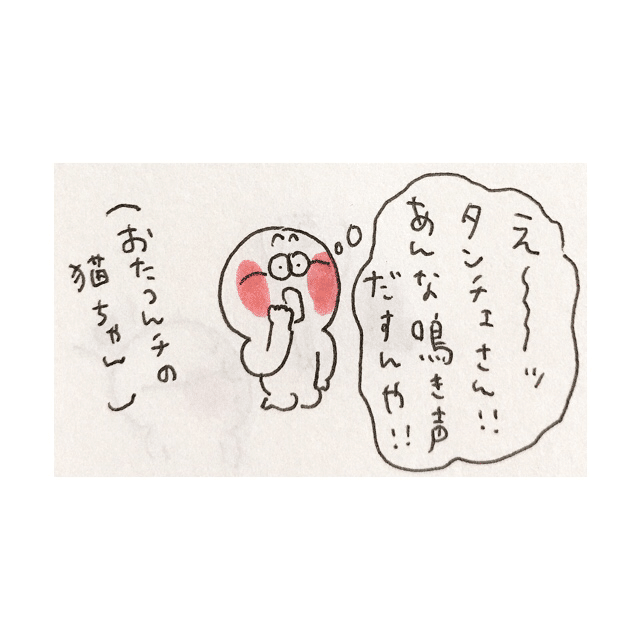 え〜〜〜ッ
タンチェさん!!
あんな鳴き声
だすんや!!
(おたつんチの
猫ちゃん)